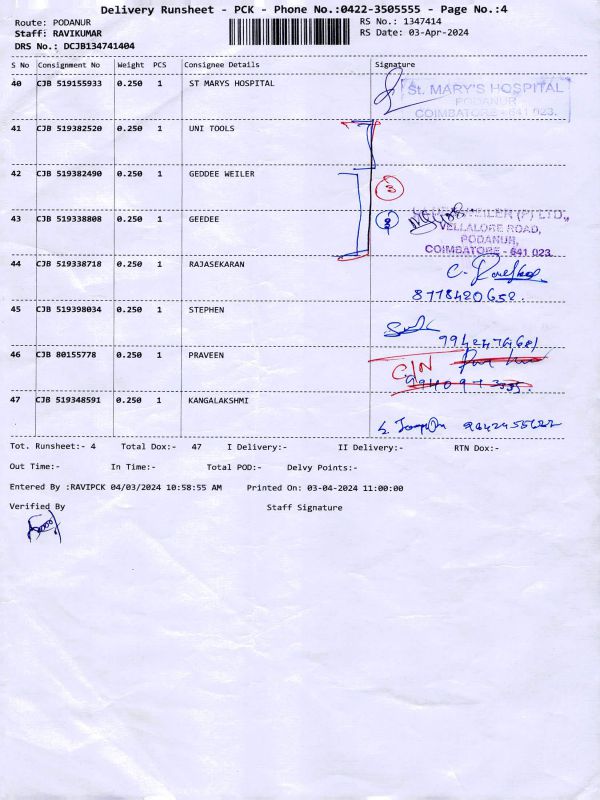 Delivery Runsheet - PCK - Phone No.:0422-3505555 - Page No.:4
Route: PODANUR
RS No.: 1347414
Staff: RAVIKUMAR
RS Date: 03-Apr-2024
DRS No.: DCJB134741404
S No Consignment No Weight PCS Consignee Details Signature
40 CJB 519155933 0.250 1 ST MARYS HOSPITAL
St. MARY'S HOSPITAL
PODANUR
COIMBATORE - 641 023.
41 CJB 519382520 0.250 1 UNI TOOLS
42 CJB 519382490 0.250 1 GEDDEE WEILER
3
43 CJB 519338808 0.250 1 GEEDEE
WEILER (P) LTD.,
VELLALORE ROAD,
PODANUR,
COIMBATORE - 641 023.
44 CJB 519338718 0.250 1 RAJASEKARAN
8778420652.
45 CJB 519398034 0.250 1 STEPHEN
46 CJB 80155778 0.250 1 PRAVEEN
C/N
47 CJB 519348591 0.250 1 KANGALAKSHMI
Tot. Runsheet:- 4 Total Dox:- 47 I Delivery:- II Delivery:- RTN Dox:-
Out Time:- In Time:- Total POD:- Delvy Points:-
Entered By :RAVIPCK 04/03/2024 10:58:55 AM Printed On: 03-04-2024 11:00:00
Verified By Staff Signature